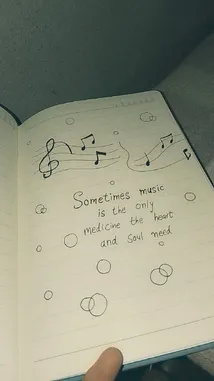 Sometimes music
is the only
medicine the heart
and soul need